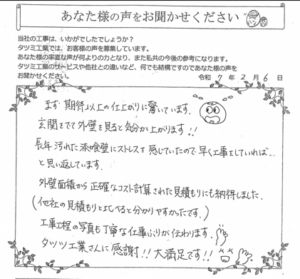 あなた様の声をお聞かせください
当社の工事は、いかがでしたでしょうか?
タツミ工業では、お客様の声を募集しています。
あなた様の率直な声が何よりの力となり、また私共の今後の参考になります。
タツミ工業のサービスや他社との違いなど、何でも結構ですのであなた様の声を
お聞かせください。
令和 7年 2月 6日
まず 期待以上の仕上りに驚いています。
玄関をでて外壁を見ると気分が上がります!!
長年 汚れた塗り壁にストレスを感じていたので 早く工事をしていれば…
と思い返しています。
外壁面積から 正確なコスト計算された見積もりにも納得しました。
(他社の見積もりと比べると分かりやすかったです。)
工事工程の写真も丁寧な仕事ぶりが伝わります。
タツミ工業さんに 感謝!! 大満足です!!